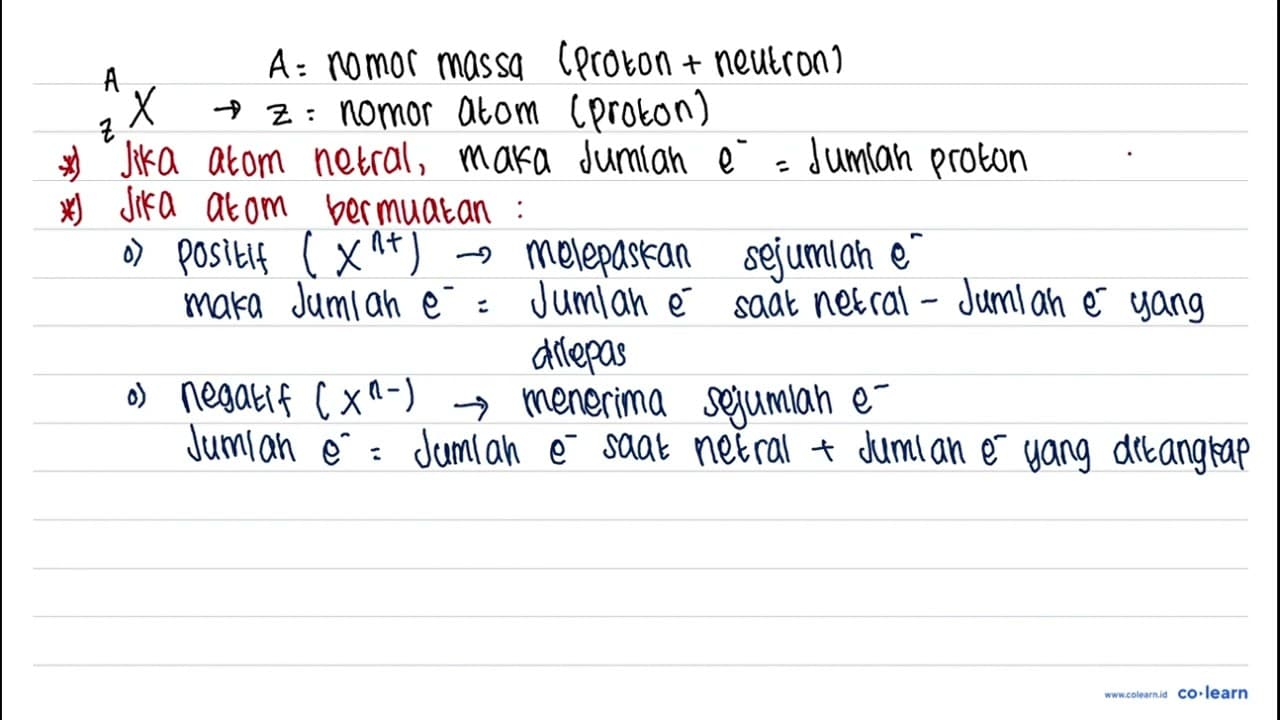 A = nomor massa (proton + neutron)
A Z X → Z = nomor atom (proton)
*) Jika atom netral, maka Jumlah e⁻ = Jumlah proton
*) Jika atom bermuatan :
o) positif (Xⁿ⁺) → melepaskan sejumlah e⁻
maka Jumlah e⁻ = Jumlah e⁻ saat netral – Jumlah e⁻ yang
dilepas
o) negatif (Xⁿ⁻) → menerima sejumlah e⁻
Jumlah e⁻ = Jumlah e⁻ saat netral + Jumlah e⁻ yang ditangkap
www.colearn.id co·learn